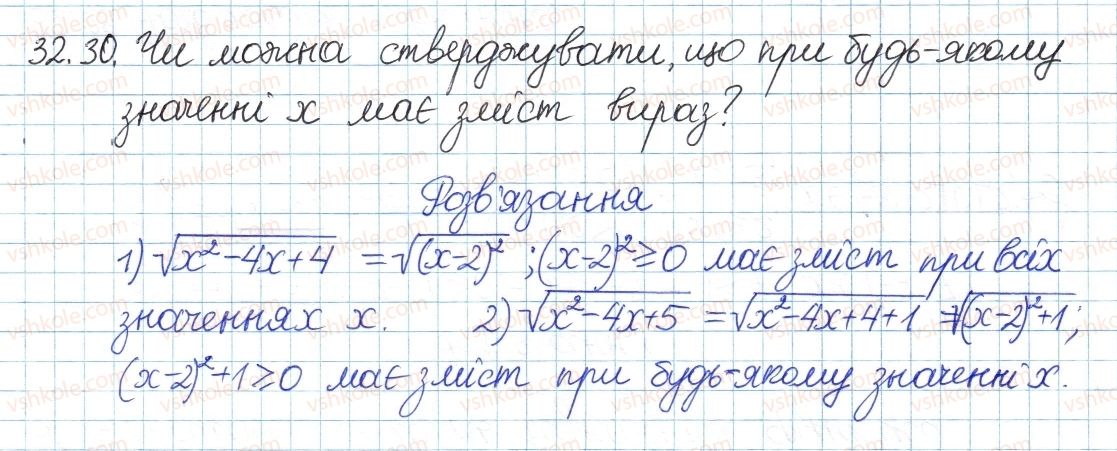 32.30. Чи можна стверджувати, що при будь-якому
значенні х має зміст вираз?
Розв'язання
1) √(x²-4x+4) = √((x-2)²) ; (x-2)² ≥ 0 має зміст при всіх
значеннях х. 2) √(x²-4x+5) = √(x²-4x+4+1) = √((x-2)²+1);
(x-2)²+1 ≥ 0 має зміст при будь-якому значенні х.